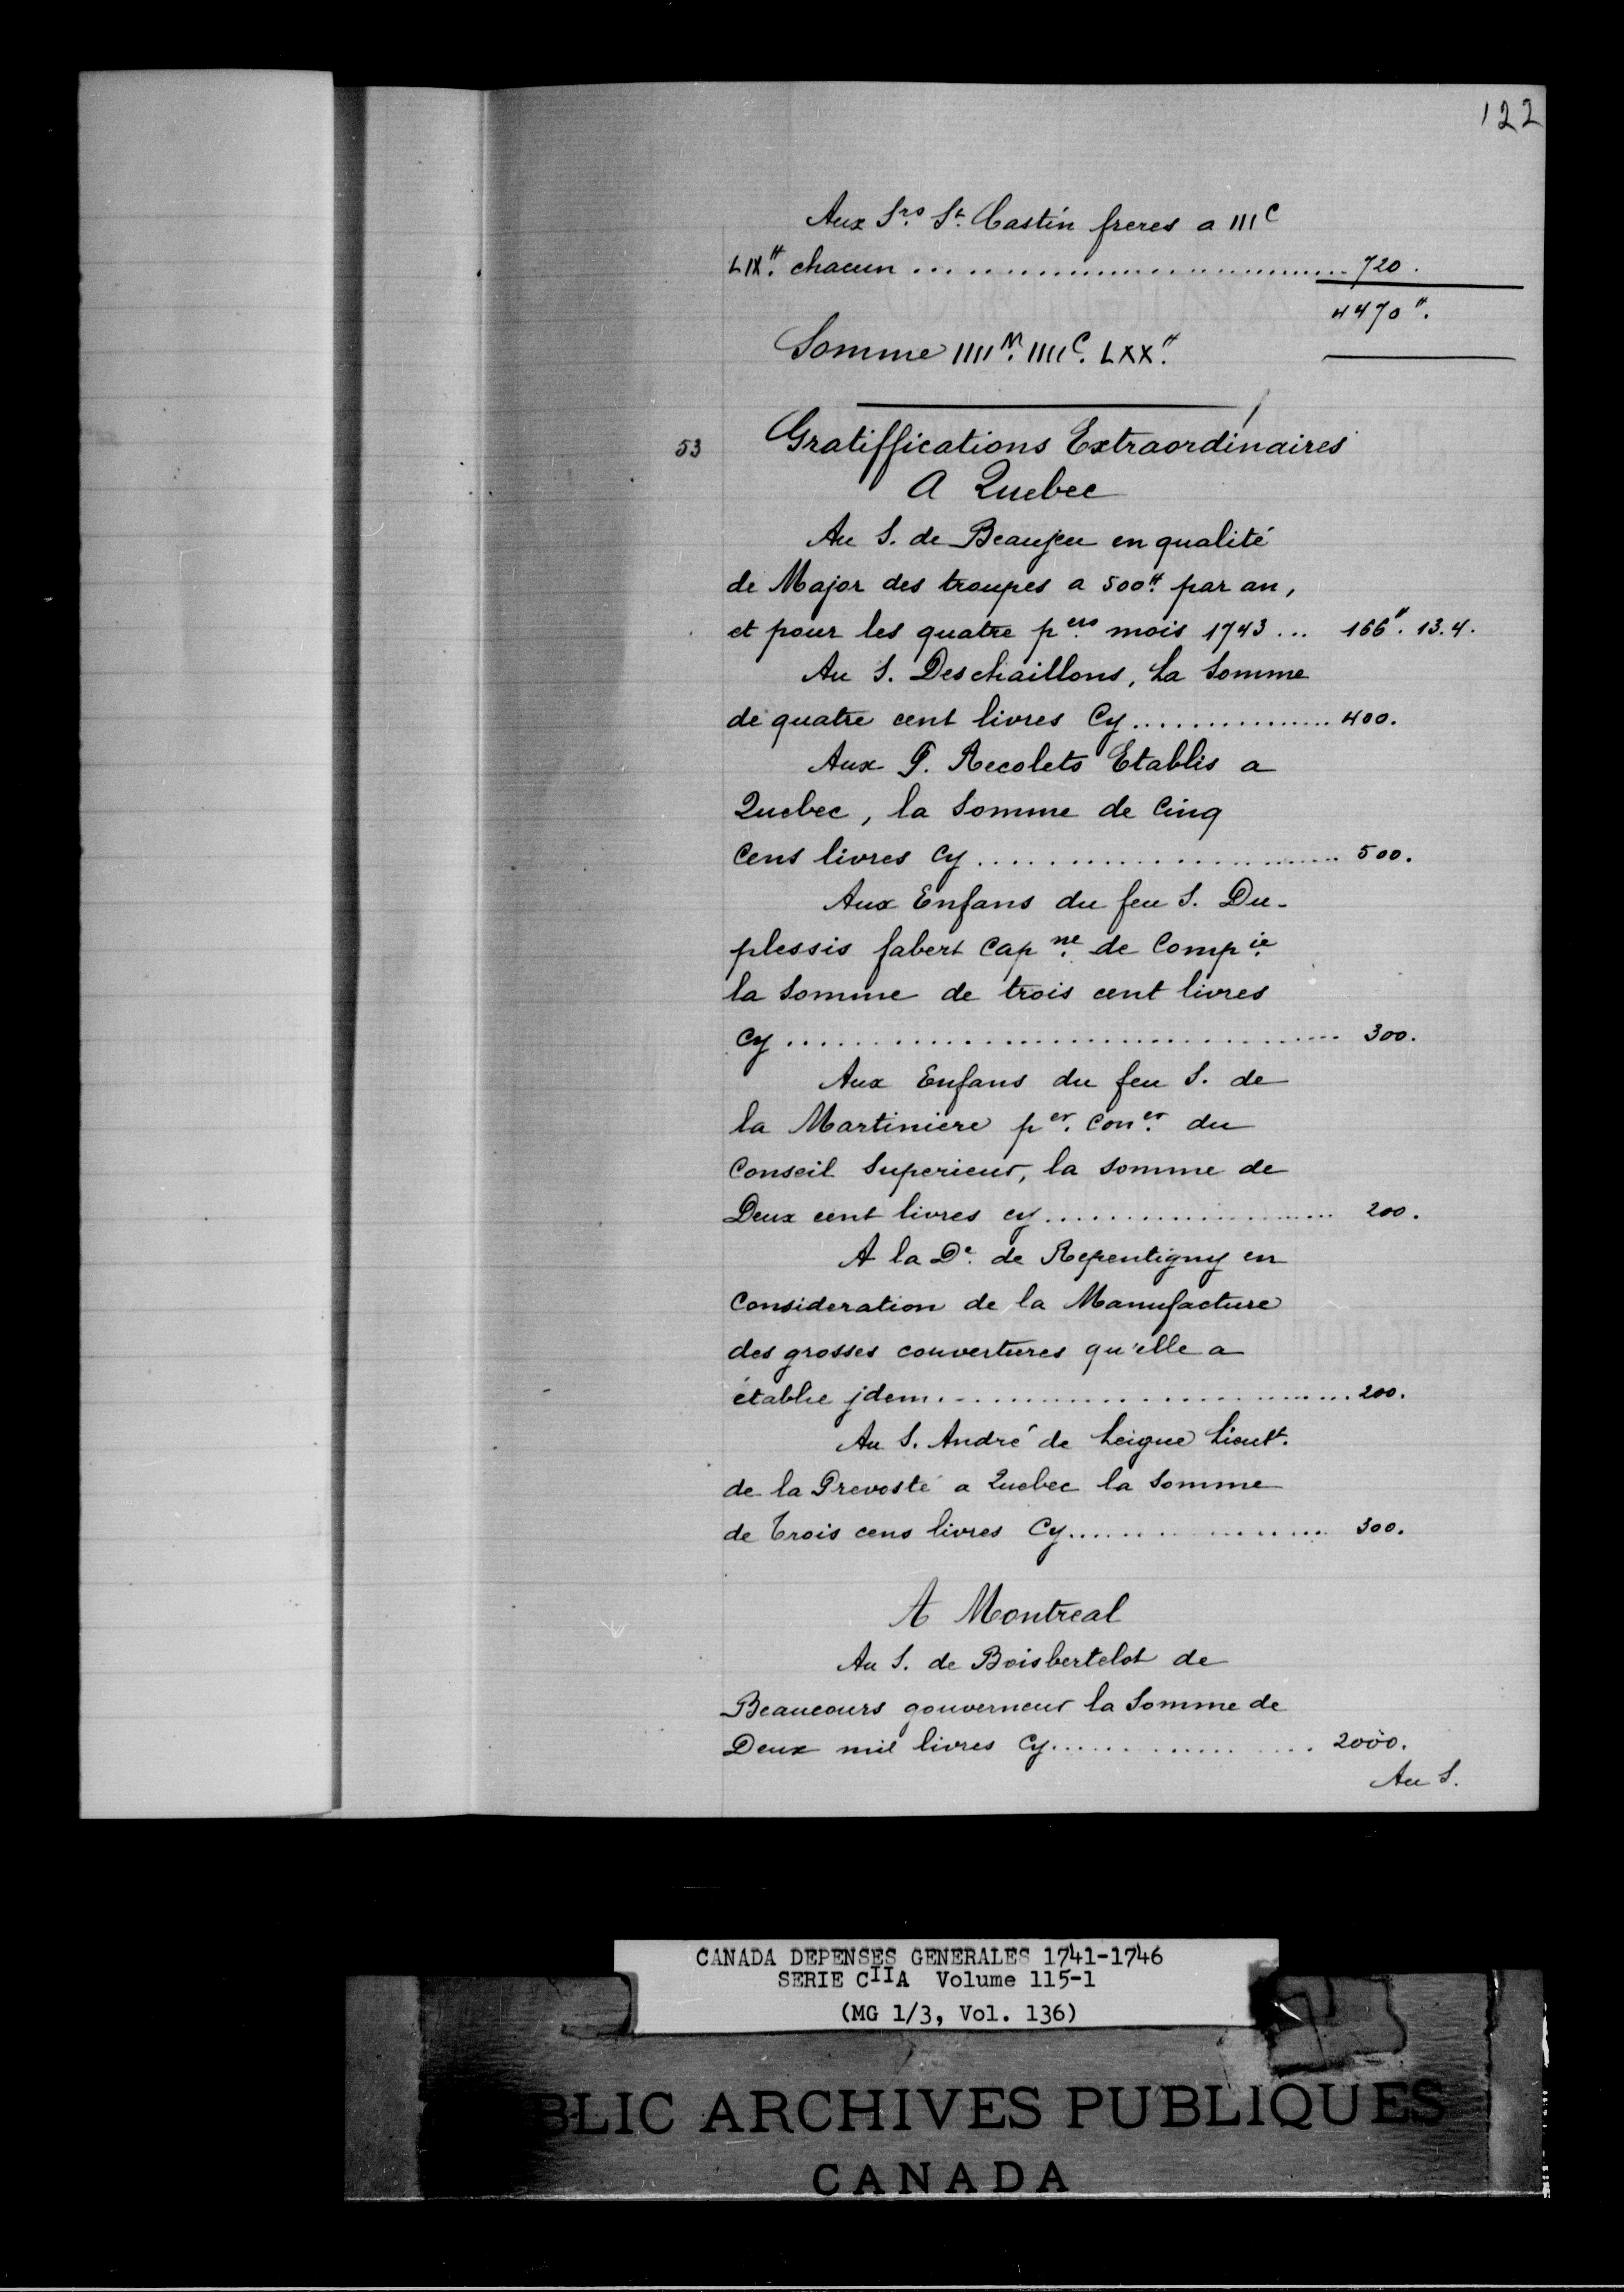 122
Aux Srs. St. Castin freres a IIIC
LIX.# chacun ........ 720.
4470#.
Somme IIIIM. IIIIC. LXX.#
53
Gratiffications Extraordinaires
A Quebec
Au S. de Beaujeu en qualité
de Major des troupes a 500.# par an,
et pour les quatre pers. mois 1743 ... 166#. 13. 4.
Au S. Deschaillons, La Somme
de quatre cent livres Cy ........ 400.
Aux P. Recolets Etablis a
Quebec, la Somme de Cinq
Cens livres Cy ........ 500.
Aux Enfans du feu S. Du-
plessis fabert Capne. de Compie.
la Somme de trois cent livres
Cy ........ 300.
Aux Enfans du feu S. de
la Martiniere per. Coner. du
Conseil Superieur, la somme de
Deux cent livres cy ........ 200.
A la De. de Repentigny en
Consideration de la Manufacture
des grosses couvertures qu'elle a
établie jdem ........ 200.
Au S. André de Leigne Lieutt.
de la Prevosté a Quebec la Somme
de Trois cens livres Cy ........ 300.
A Montreal
Au S. de Boisbertelot de
Beaucours gouverneur la Somme de
Deux mil livres Cy ........ 2000.
Au S.
CANADA DEPENSES GENERALES 1741-1746
SERIE CIIA Volume 115-1
(MG 1/3, Vol. 136)
BLIC ARCHIVES PUBLIQUES
CANADA